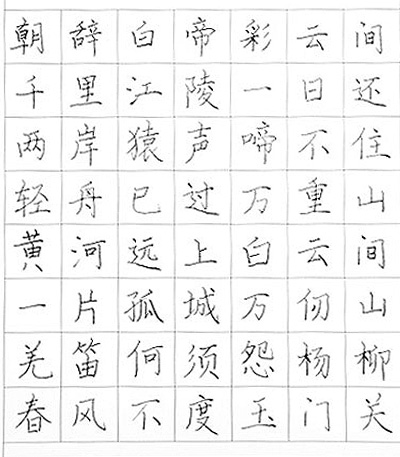 朝辞白帝彩云间
千里江陵一日还
两岸猿声啼不住
轻舟已过万重山
黄河远上白云间
一片孤城万仞山
羌笛何须怨杨柳
春风不度玉门关